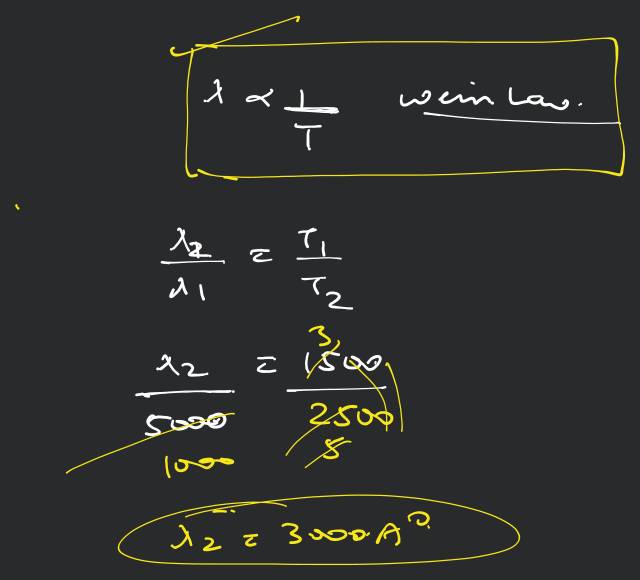 λ ∝ 1/T wein Law.
λ2/λ1 = T1/T2
λ2/5000 = 1500/2500
3
1000
5
λ2 = 3000A°